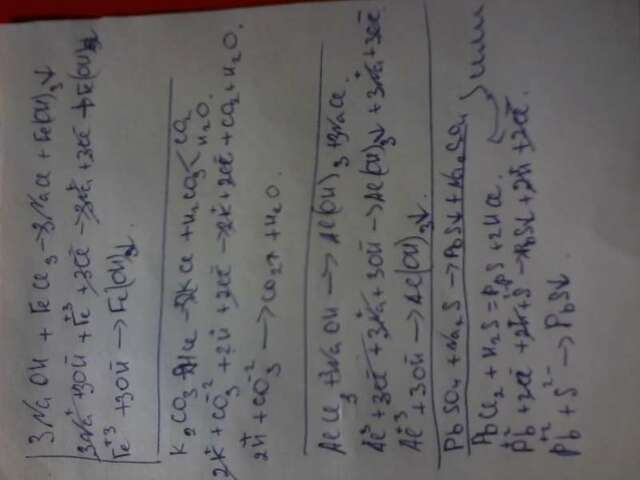 3NaOH + FeCl₃ → 3NaCl + Fe(OH)₃↓
3Na⁺ + 3OH⁻ + Fe⁺³ + 3Cl⁻ → 3Na⁺ + 3Cl⁻ + Fe(OH)₃↓
Fe⁺³ + 3OH⁻ → Fe(OH)₃↓
K₂CO₃ + 2HCl → 2KCl + H₂CO₃ < CO₂
H₂O.
2K⁺ + CO₃⁻² + 2H⁺ + 2Cl⁻ → 2K⁺ + 2Cl⁻ + CO₂ + H₂O.
2H⁺ + CO₃⁻² → CO₂↑ + H₂O.
AlCl₃ + 3NaOH → Al(OH)₃ + 3NaCl.
Al⁺³ + 3Cl⁻ + 3Na⁺ + 3OH⁻ → Al(OH)₃↓ + 3Na⁺ + 3Cl⁻
Al⁺³ + 3OH⁻ → Al(OH)₃↓.
PbSO₄ + Na₂S → PbS↓ + Na₂SO₄
PbCl₂ + H₂S = PbS + 2HCl. } или
Pb⁺² + 2Cl⁻ + 2H⁺ + S⁻² → PbS↓ + 2H⁺ + 2Cl⁻.
Pb⁺² + S²⁻ → PbS↓.